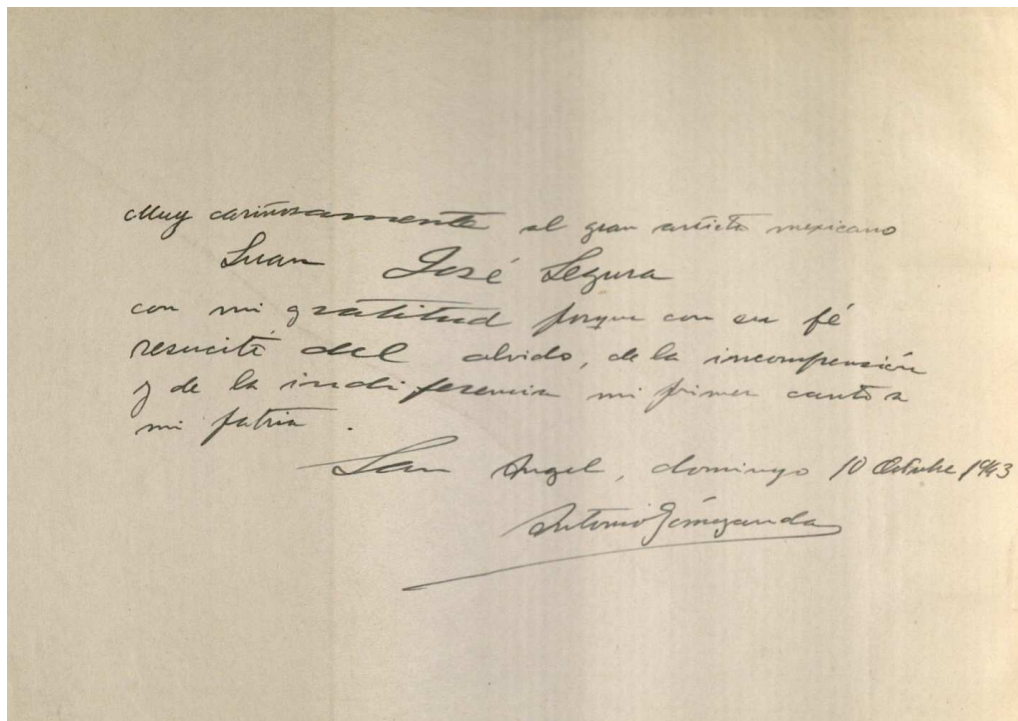 Muy cariñosamente al gran artista mexicano
Juan José Segura
con mi gratitud porque con su fé
resucité del olvido, de la incomprensión
y de la indiferencia mi primer canto a
mi patria.
San Angel, domingo 10 Octubre 1943
Antonio Gómezanda